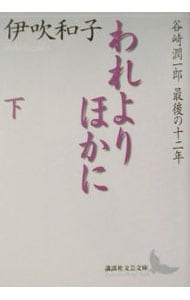 谷崎潤一郎 最後の十二年
われより
ほかに
伊吹和子
下
講談社文芸文庫